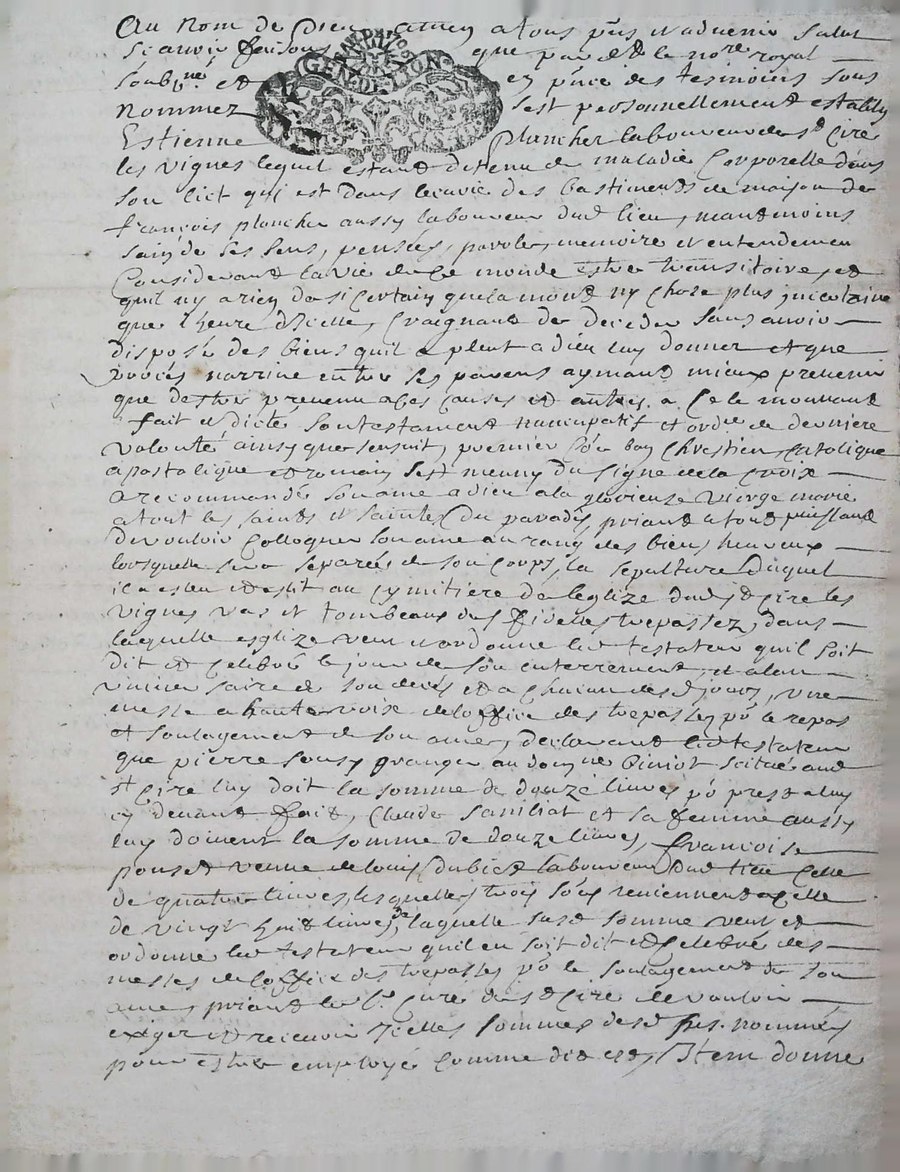 Au nom de Dieu amen a tous pñs et advenir salut
scavoir faisons que par devt le nore royal
soubnẽ et en pñce des tesmoins sous
GEN DE LYON
nommez s'est personnellement estably
Estienne plancher laboureur de St Cire
les vignes lequel estant detenu de maladie Corporelle dans
son lict qui est dans des bastiments de maison de
françois plancher aussy laboureur dud lieu, neantmoins
sain de ses sens, pensées, parole, memoire et entendemen
Considerant la vie de Ce monde estre transitoire, et
quil ny a rien de si Certain que la mort ny chose plus incertaine
que l'heure d'Icelle, Craignant de deceder sans avoir
disposé des biens quil a pleut a dieu luy donner et que
procés narrive entre ses parens aymant mieux prevenir
que destre prevenu a Ces Causes et autres a Ce le mouvant
fait et dicté son testament nuncupatif et ordce de derniere
volonté ainsy que sensuit, premier Coẽ bon Chrestien Catolique
apostolique et romain sest muny du signe de la Croix
a recommandé son ame a dieu a la glorieuse vierge marie
a tout les saints et saintes du paradis priant le tout puissant
de vouloir Colloquer son ame au rang des bien heureux
lorsquelle sera separée de son Corps, la sepulture duquel
il a esleu et eslit au Cymitiere de leglize dud St Cire les
vignes vas et tombeaux des fidelles trepassez, dans
laquelle esglize veut et ordonne led testateur quil soit
dit et Celebré le jour de son enterrement, et a l'an
niversaire de son decés et a Chacun desd jours, une
messe a haute voix de loffice des trepasses pr le repos
et soulagement de son ame, declarant led testateur
que pierre granger au domãne scitué aud
St Cire luy doit la somme de douze livres pr prest a luy
cy devant fait, Claude et sa femme aussy
luy doivent la somme de douze livres, françoise
veuve de Louis laboureur dud lieu Celle
de quatre livres, lesquelles trois somẽs reviennent a Celle
de vingt huit livres, de laquelle susd somme veut et
ordonne led testateur quil en soit dit et Celebré des
messes de loffice des trepasses pr le soulagement de son
ame, priant le Sr Curé dud St Cire de vouloir
exiger et recevoir Icelles sommes desd sus nommés
pour estre employé Comme dit est, Item donne